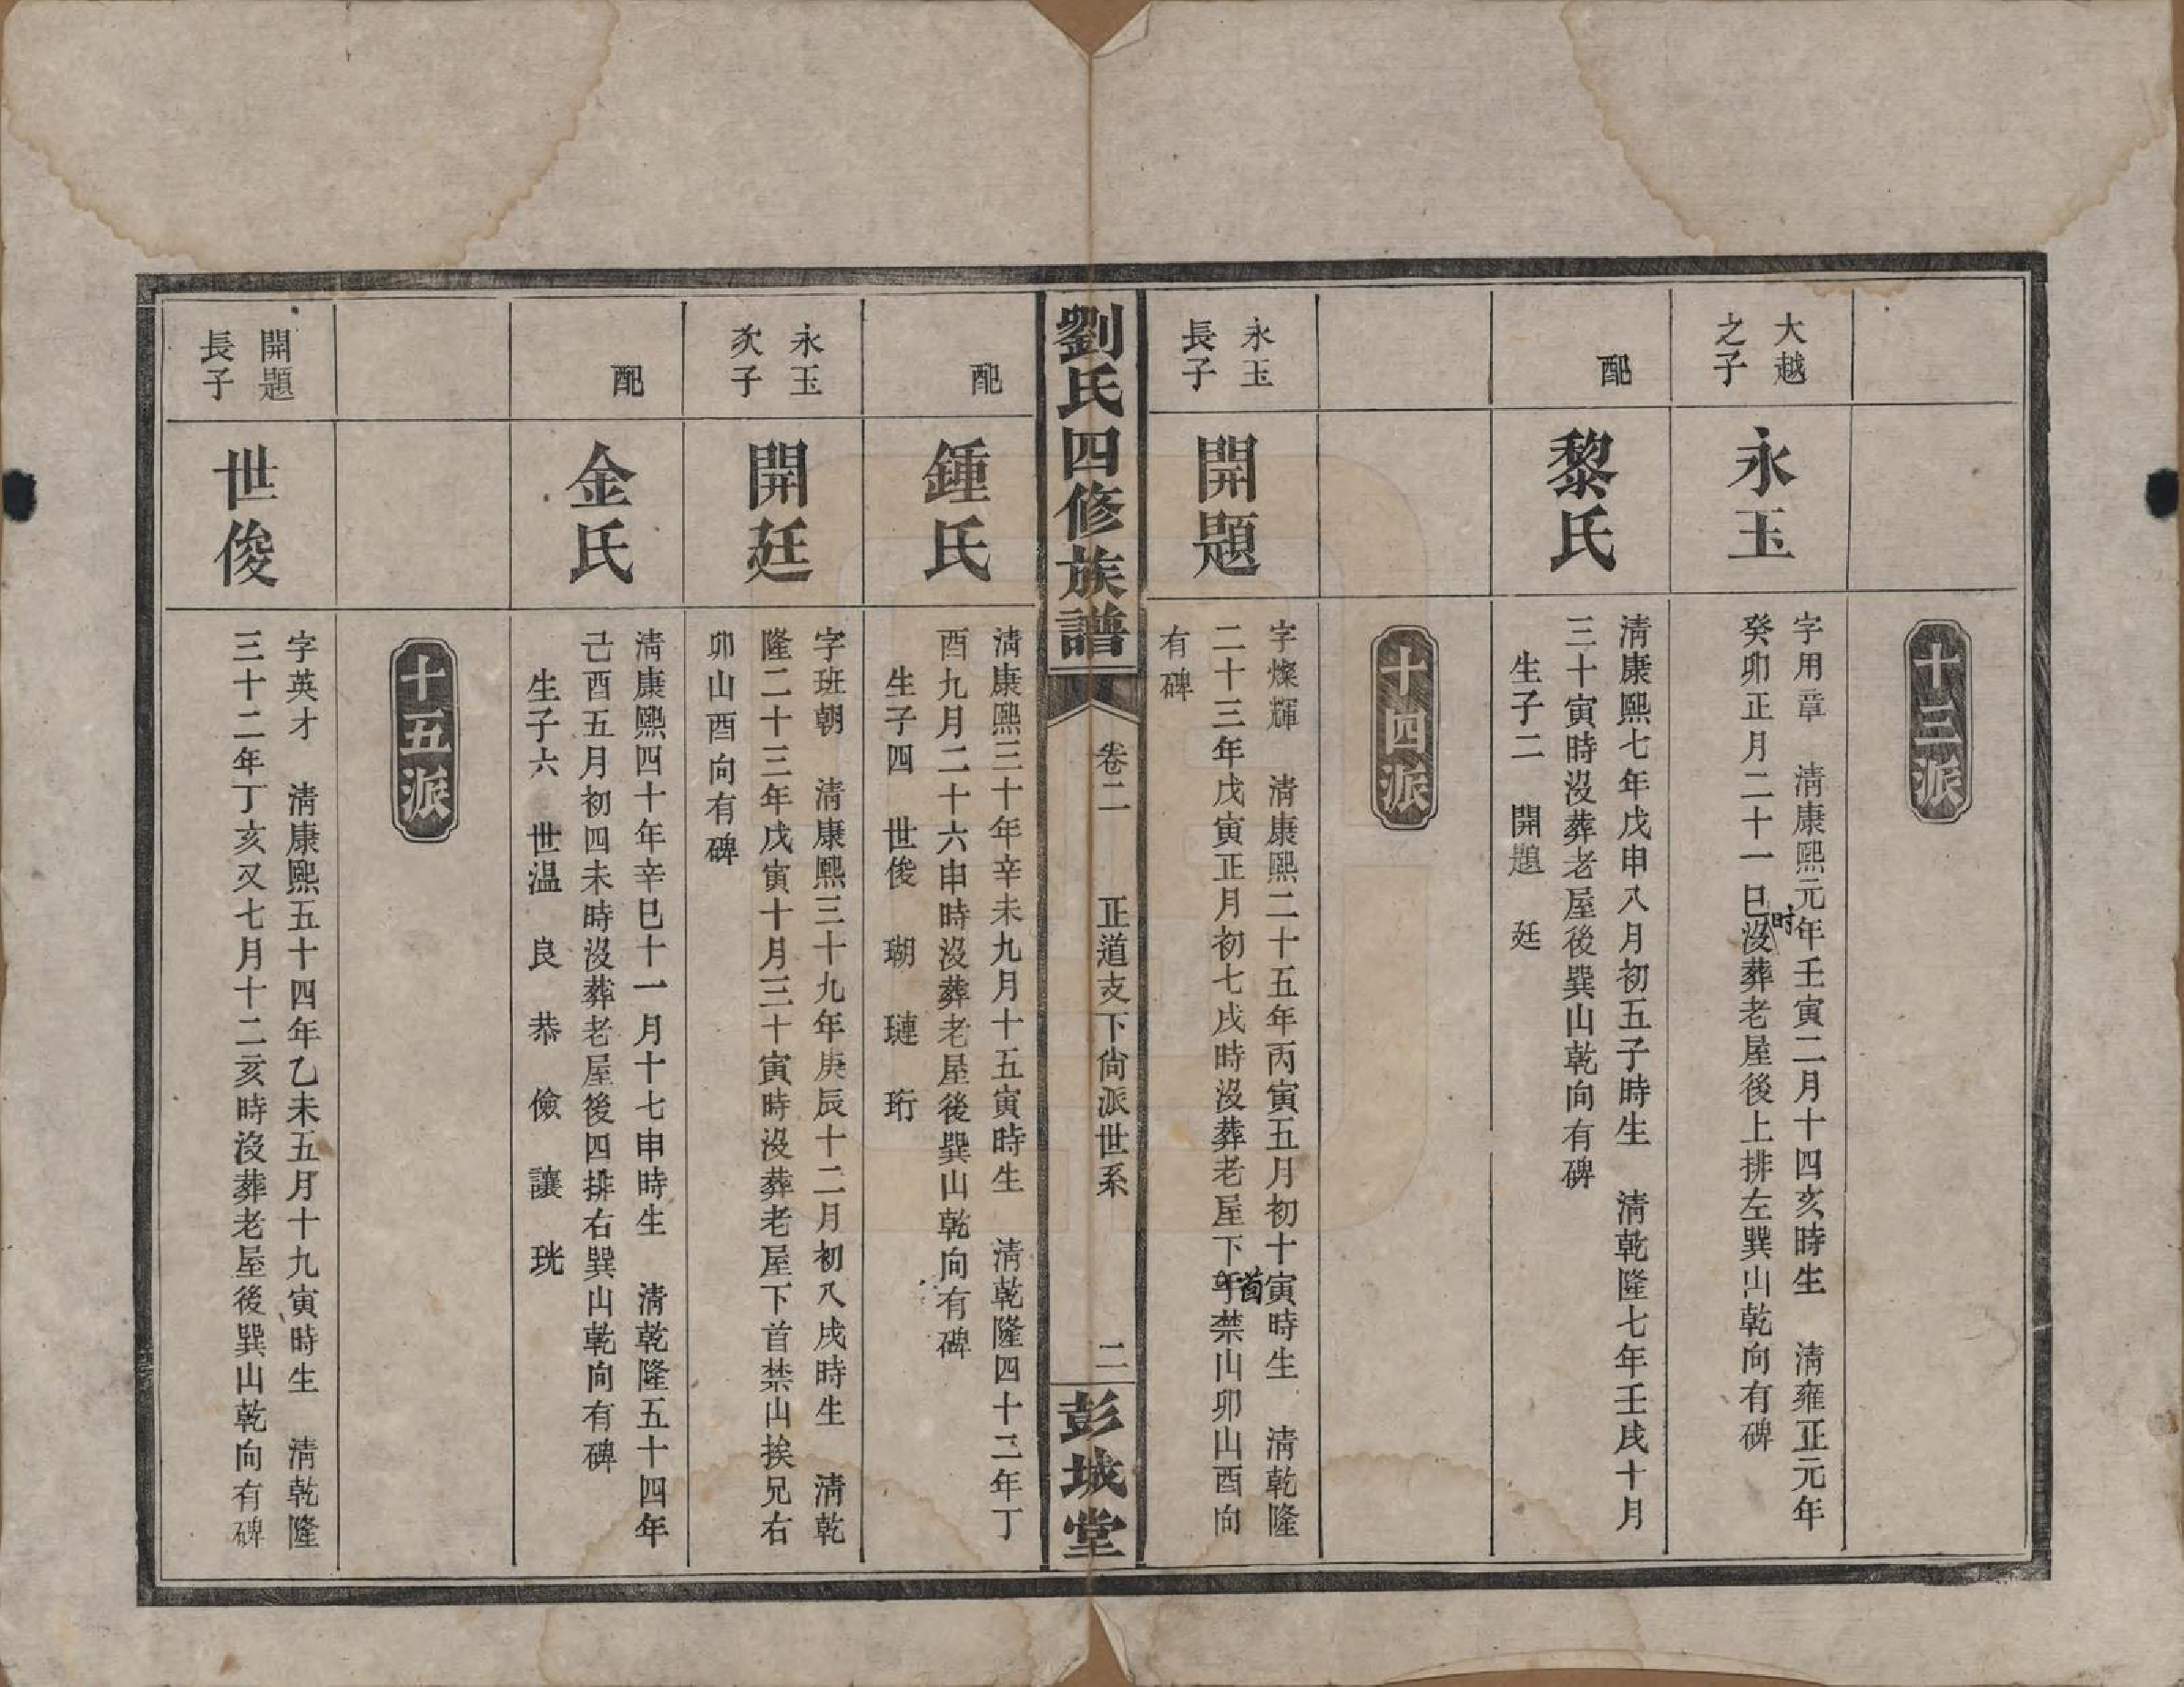 十三派
大越
之子
永玉
字用章 清康熙元年壬寅二月十四亥時生 清雍正元年
癸卯正月二十一巳时沒葬老屋後上排左巽山乾向有碑
配
黎氏
清康熙七年戊申八月初五子時生 清乾隆七年壬戌十月
三十寅時沒葬老屋後巽山乾向有碑
生子二 開題 廷
十四派
永玉
長子
開題
字燦輝 清康熙二十五年丙寅五月初十寅時生 清乾隆
二十三年戊寅正月初七戌時沒葬老屋下首禁山卯山酉向
有碑
劉氏四修族譜
卷二 正道支下尙派世系 二
彭城堂
配
鍾氏
清康熙三十年辛未九月十五寅時生 清乾隆四十二年丁
酉九月二十六申時沒葬老屋後巽山乾向有碑
生子四 世俊 瑚 璉 珩
永玉
次子
開廷
字班朝 清康熙三十九年庚辰十二月初八戌時生 清乾
隆二十三年戊寅十月三十寅時沒葬老屋下首禁山挨兄右
卯山酉向有碑
配
金氏
清康熙四十年辛巳十一月十七申時生 清乾隆五十四年
己酉五月初四未時沒葬老屋後四排右巽山乾向有碑
生子六 世温 良 恭 儉 讓 珖
十五派
開題
長子
世俊
字英才 清康熙五十四年乙未五月十九寅時生 清乾隆
三十二年丁亥又七月十二亥時沒葬老屋後巽山乾向有碑